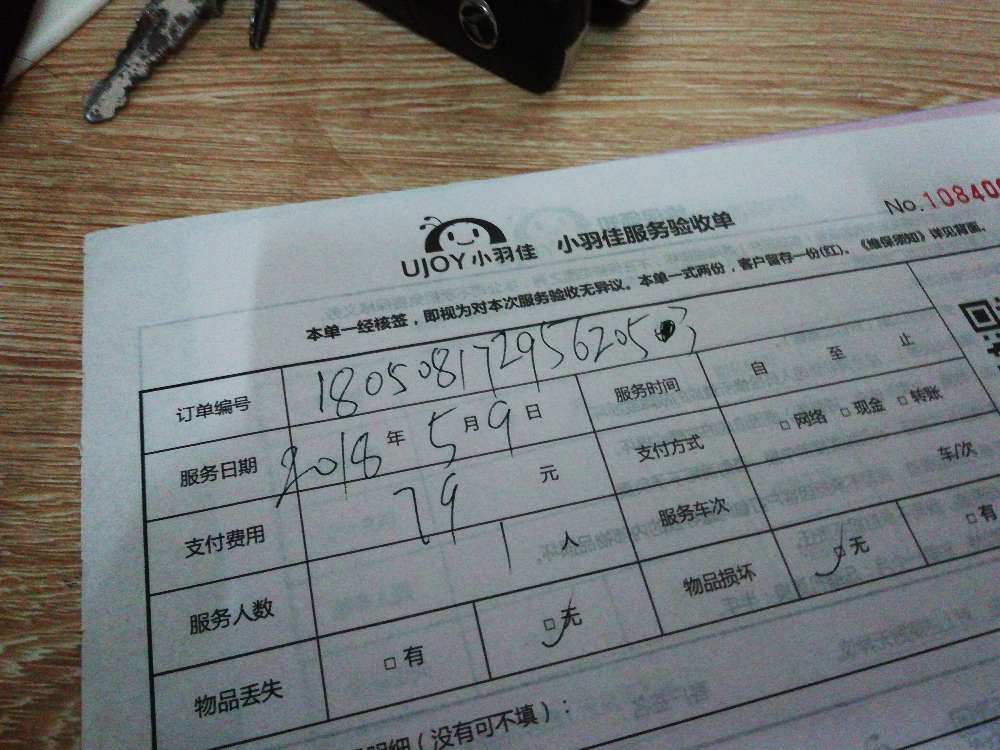 UJOY小羽佳 小羽佳服务验收单 No.10840
本单一经核签，即视为对本次服务验收无异议。本单一式两份，客户留存一份(红)、《维保须知》详见背面。
订单编号 18050817295620503
服务日期 2018年5月9日 服务时间 自 至 止
支付费用 79元 支付方式 □网络 □现金 □转账
服务人数 1人 服务车次 车/次
物品丢失 □有 □无 物品损坏 □无 □有
明细（没有可不填）：